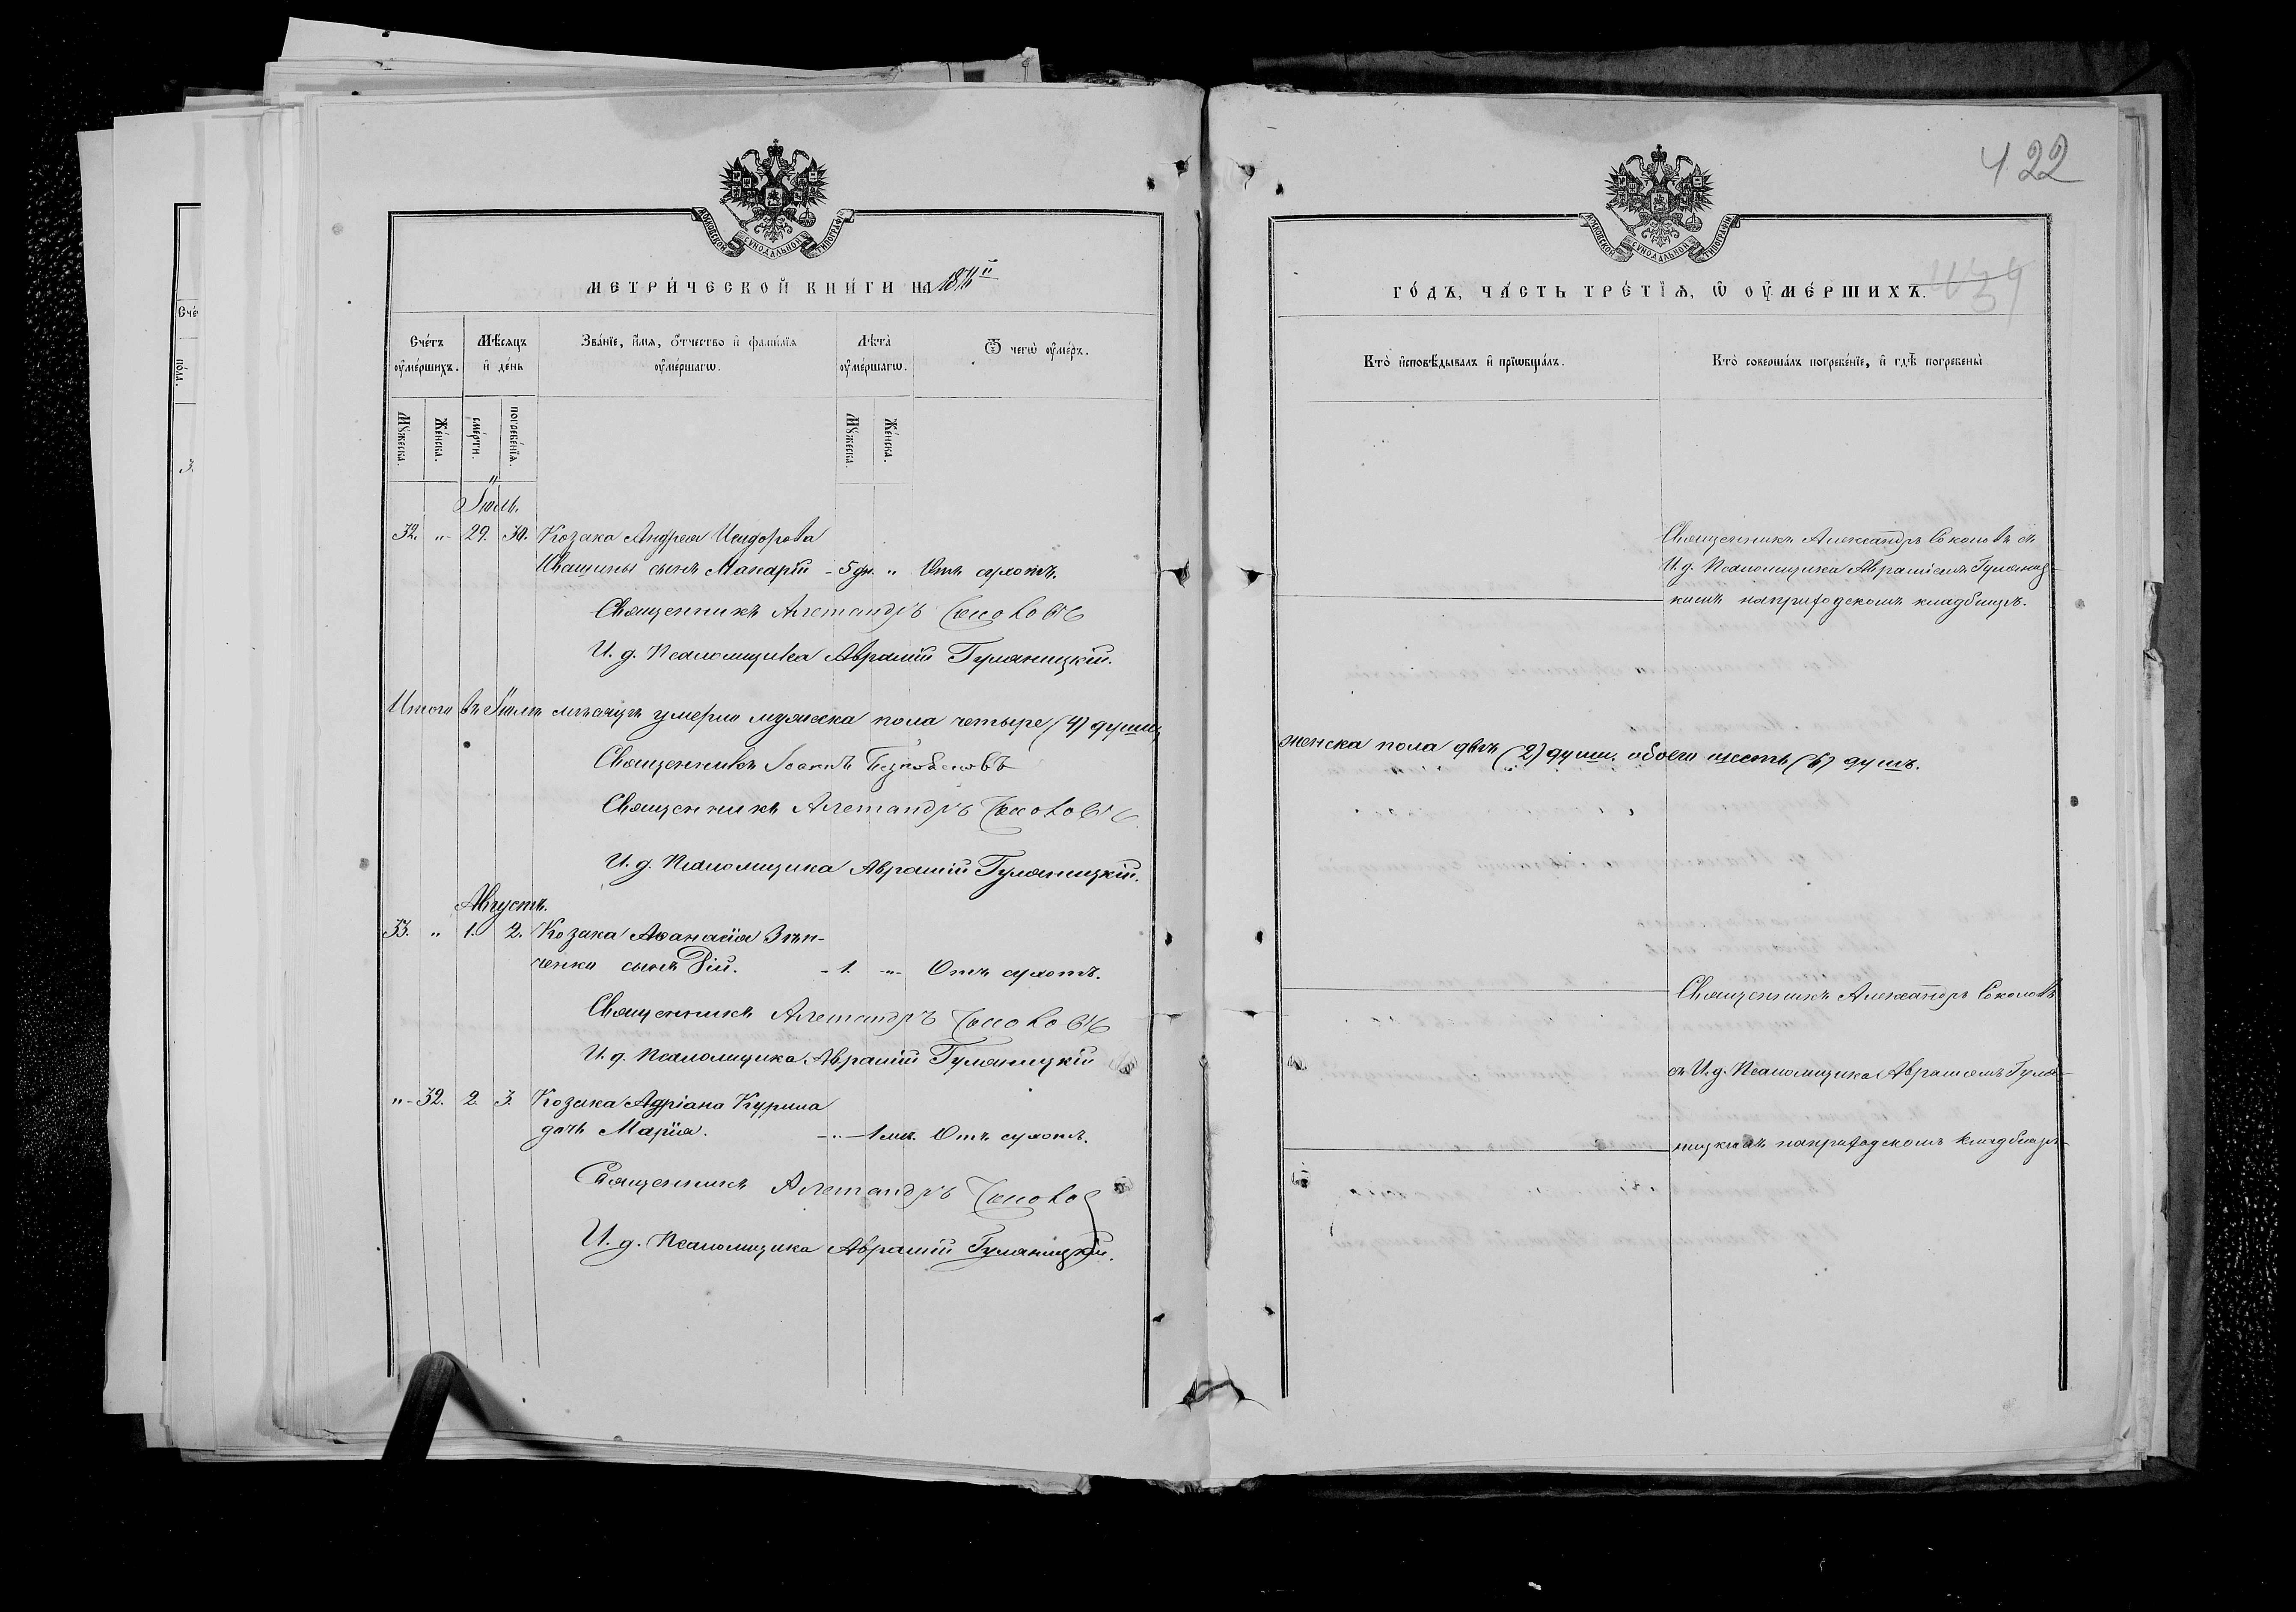 МОСКОВСКОЙ СѴНОДАЛЬНОЙ ТИПОГРАФІИ
МЕТРИ́ЧЕСКОЙ КНИ́ГИ НА 18
Счéтъ ѹ҆мéршихъ.
Мѣ́сяцъ и҆ дéнь
Звáнїе, и҆́мя, ѻ҆́тчество и҆ фами́лїя ѹ҆мéршагѡ.
Лѣ́та ѹ҆мéршагѡ.
Ѿ чегѡ̀ ѹ҆́меръ.
Мꙋ́жеска.
Жéнска.
смéрти.
погребéнїѧ.
Мꙋ́жеска.
Жéнска.
Іюль.
32. „ 29. 30. Козака Андрея Исидорова
Иващины сынъ Макарій - 5 дн. „ Отъ сухотъ.
Священникъ Александръ Соколовъ
И. д. Псаломщика Аврамій Гуляницкій.
Итого въ Іюлѣ мѣсяцѣ умерло мужеска пола четыре (4) души,
Священникъ Іоаннъ
Священникъ Александръ Соколовъ
И. д. Псаломщика Аврамій Гуляницкій.
Августъ.
33. „ 1. 2. Козака Аѳанасія Зѣн-
ченка сынъ Вій. - 1. „ Отъ сухотъ.
Священникъ Александръ Соколовъ
И. д. Псаломщика Аврамій Гуляницкій
„ 32. 2. 3. Козака Адріана Курила
дочь Марія. - „ - 1 мѣс. Отъ сухотъ.
Священникъ Александръ Соколов
И. д. Псаломщика Аврамій Гуляницкій.
4.22
МОСКОВСКОЙ СѴНОДАЛЬНОЙ ТИПОГРАФІИ
ГО́ДЪ, ЧА́СТЬ ТРЕ́ТЇѦ, Ѡ҆ ОУ҆МЕ́РШИХЪ.
Ктò и҆сповѣ́дывалъ и҆ прїѡбщáлъ.
Ктò совершáлъ погребéнїе, и҆ гдѣ̀ погребены̀
Священникъ Александръ Соколовъ съ
И. д. Псаломщика Авраміемъ Гуляниц-
кимъ на приходскомъ кладбищѣ.
женска пола двѣ (2) души. обоего шесть (6) душъ.
Священникъ Александръ Соколовъ
съ И. д. Псаломщика Авраміемъ Гуля-
ницкимъ на приходскомъ кладбищѣ